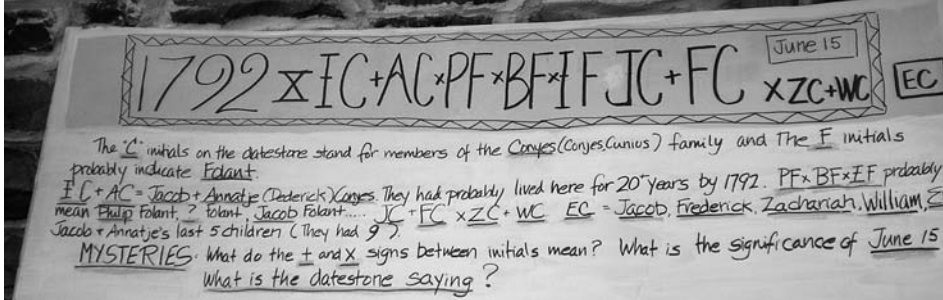 1792 x IC+AC×PF×BF×IF JC+FC ×ZC+WC June 15 EC
The "C" initials on the datestone stand for members of the Conyes (Conjes, Cunius) family and The F initials
probably indicate Folant.
IC+AC = Jacob + Annatje (Dederick) Conyes. They had probably lived here for 20+ years by 1792. PF×BF×IF probably
mean Philip Folant, ? Folant, Jacob Folant..... JC+FC ×ZC+WC EC = Jacob, Frederick, Zachariah, William,
Jacob + Annatje's last 5 children (They had 9).
MYSTERIES: What do the + and x signs between initials mean? What is the significance of June 15
What is the datestone saying?